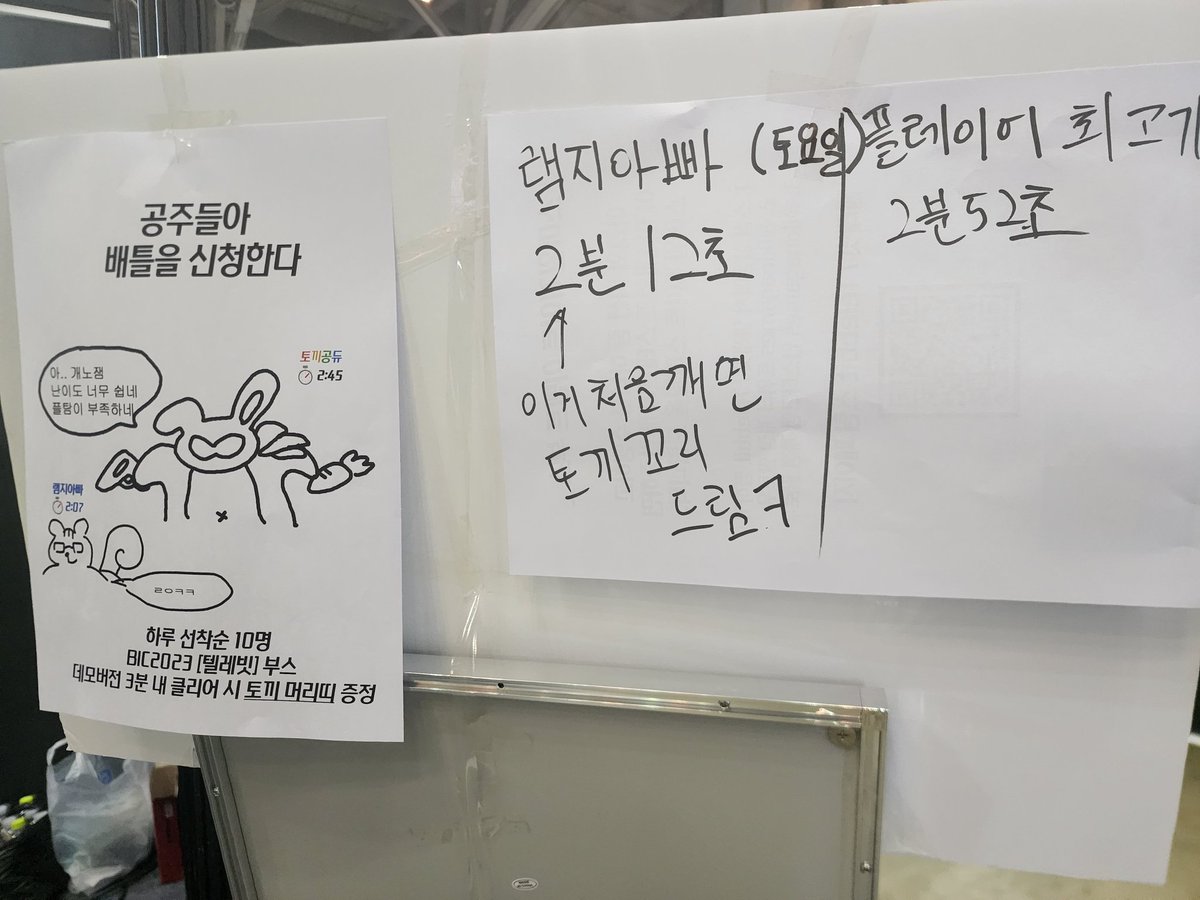 공주들아
배틀을 신청한다
토끼공듀
2:45
아.. 개노잼
난이도 너무 쉽네
플탐이 부족하네
램지아빠
2:07
ㄹㅇㅋㅋ
하루 선착순 10명
BIC2023 [텔레빗] 부스
데모버전 3분 내 클리어 시 토끼 머리띠 증정
램지아빠 (토요일)
2분 12초
↑
이거 처음 깨면
토끼 꼬리
드림ㅋ
플레이어 최고기
2분 52초